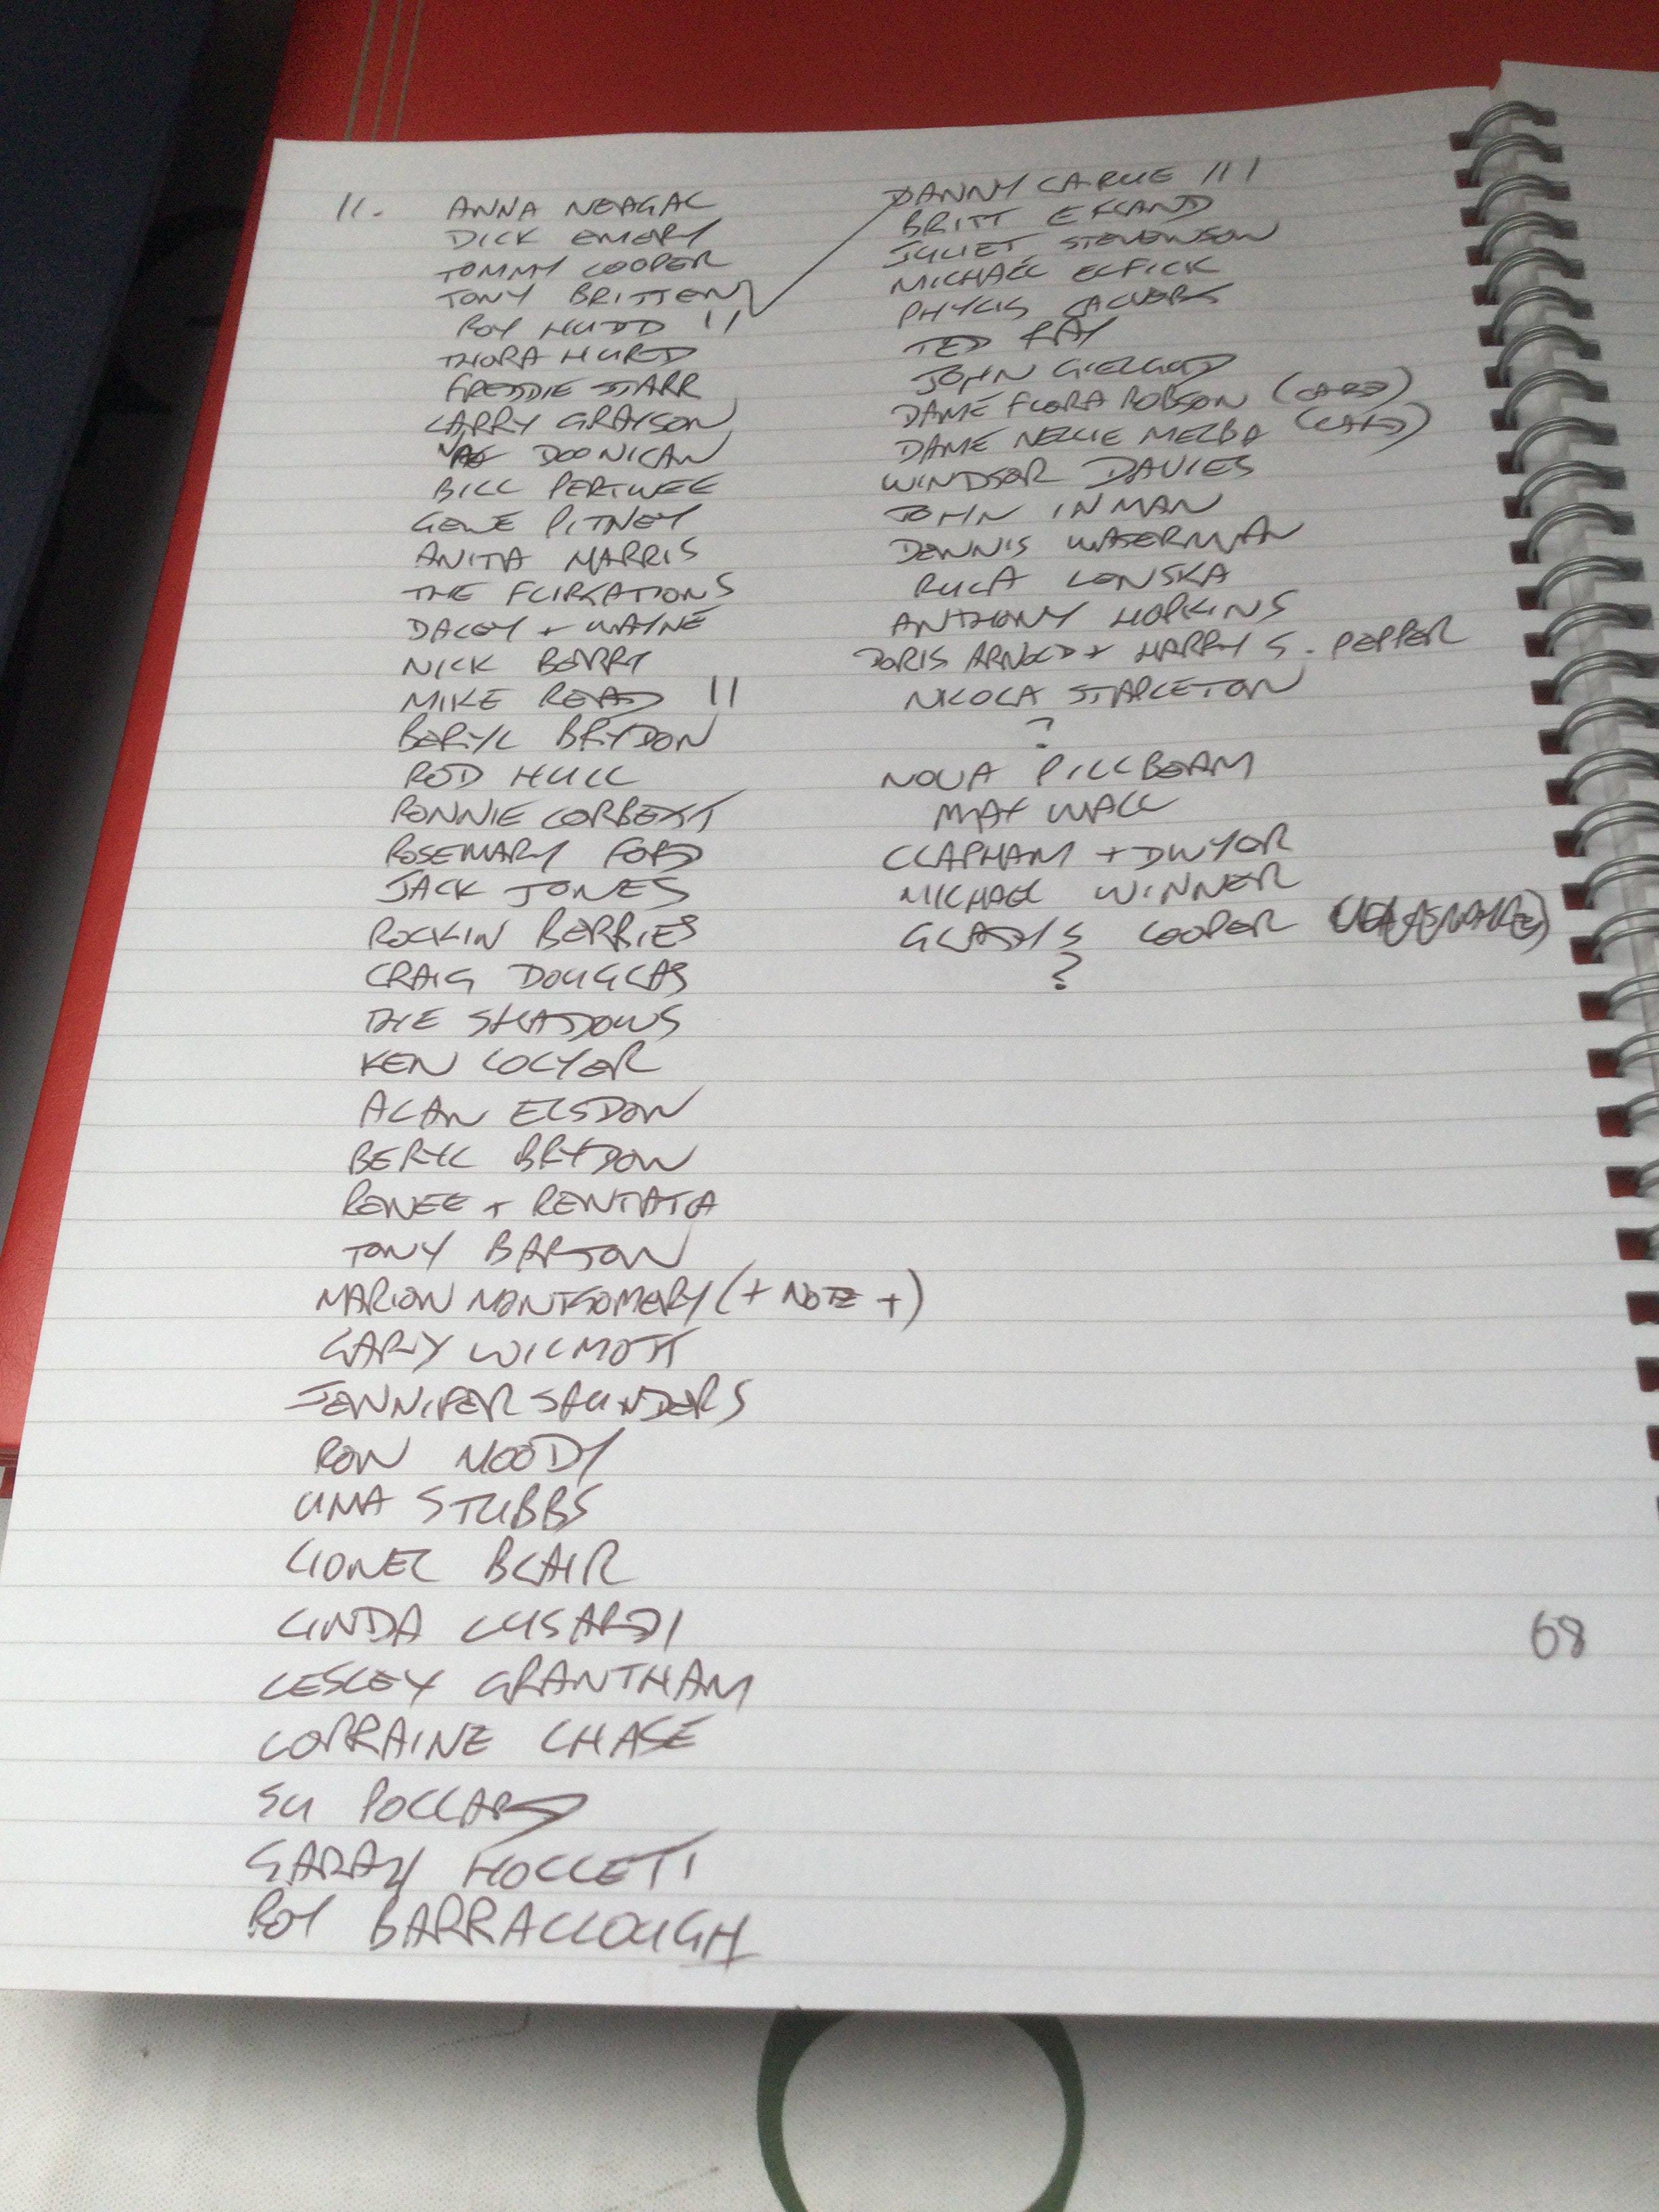 11.
ANNA NEAGAL
DICK EMERY
TOMMY COOPER
TONY BRITTEN
ROY HUDD 11
THORA HURD
FREDDIE STARR
LARRY GRAYSON
VAL DOONICAN
BILL PERTWEE
GENE PITNEY
ANITA HARRIS
THE FLIRTATIONS
DALEY + WAYNE
NICK BERRY
MIKE READ 11
BERYL BRYDON
ROD HULL
RONNIE CORBETT
ROSEMARY FORD
JACK JONES
ROCKIN BERRIES
CRAIG DOUGLAS
THE SHADOWS
KEN COLYER
ALAN ELSDON
BERYL BRYDON
RENEE + RENTATA
TONY BARTON
MARION MONTGOMERY (+ NOTE +)
GARY WILMOTT
JENNIFER SAUNDERS
RON MOODY
UNA STUBBS
LIONEL BLAIR
LINDA LUSARDI
LESLEY GRANTHAM
LORRAINE CHASE
SU POLLARD
SARAH HOLLETT
ROY BARRACLOUGH
DANNY LARUE 111
BRITT EKLAND
JULIET STEVENSON
MICHAEL ELFICK
PHYLIS
TED RAY
JOHN GIELGUD
DAME FLORA ROBSON (CARD)
DAME NELLIE MELBA (CARD)
WINDSOR DAVIES
JOHN INMAN
DENNIS WATERMAN
RULA LENSKA
ANTHONY HOPKINS
DORIS ARNOLD + HARRY S. PEPPER
NICOLA STAPLETON
?
NOVA PILLBEAM
MAX WALL
CLAPHAM + DWYER
MICHAEL WINNER
GLADYS COOPER
?
68